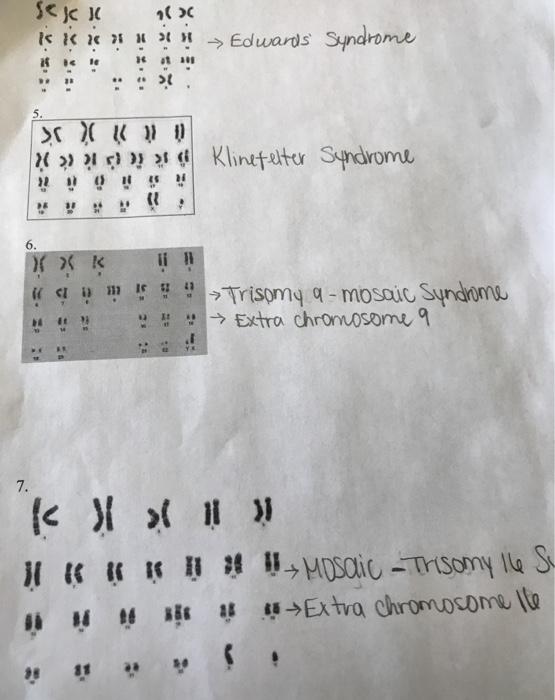 → Edwards Syndrome
5.
Klinefelter Syndrome
6.
→ Trisomy 9 - mosaic Syndrome
→ Extra chromosome 9
7.
→ Mosaic - Trisomy 16
→ Extra chromosome 16